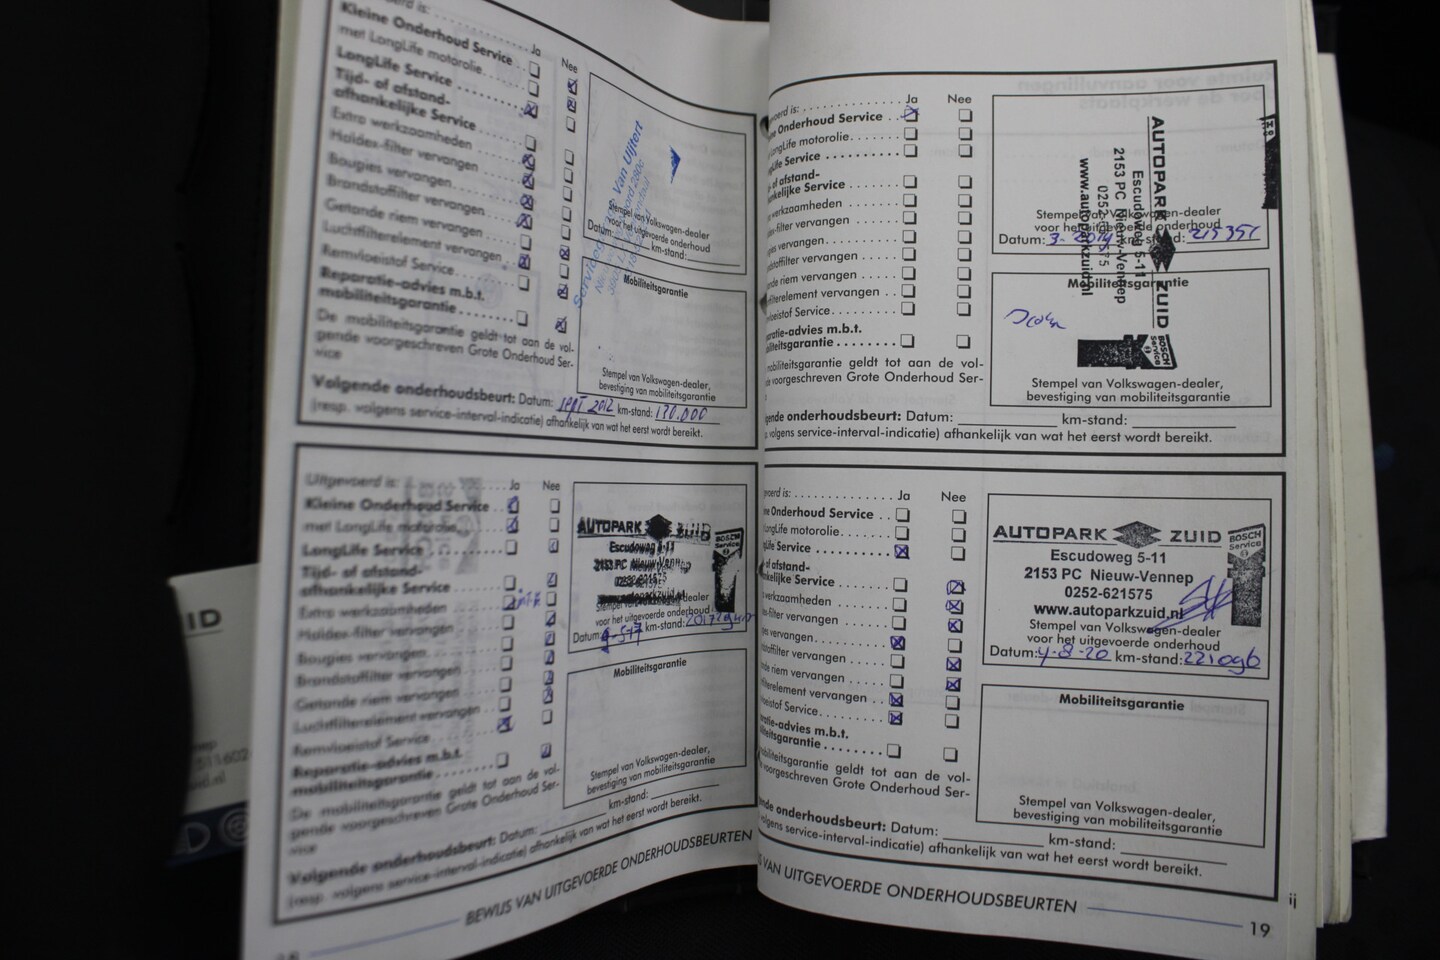 Ja
Nee
Kleine Onderhoud Service
met LongLife motorolie
LongLife Service
Tijd- of afstand-
afhankelijke Service
Extra werkzaamheden
Haldex-filter vervangen
Bougies vervangen
Brandstoffilter vervangen
Getande riem vervangen
Luchtfilterelement vervangen
Remvloeistof Service
Reparatie-advies m.b.t.
mobiliteitsgarantie
De mobiliteitsgarantie geldt tot aan de vol-
gende voorgeschreven Grote Onderhoud Ser-
vice
Van Uijtert
Stempel van Volkswagen-dealer
voor het uitgevoerde onderhoud
Datum: km-stand:
Mobiliteitsgarantie
Stempel van Volkswagen-dealer,
bevestiging van mobiliteitsgarantie
Volgende onderhoudsbeurt: Datum: sept 2012 km-stand: 170.000
(resp. volgens service-interval-indicatie) afhankelijk van wat het eerst wordt bereikt.
Uitgevoerd is: Ja Nee
Kleine Onderhoud Service
met LongLife motorolie
LongLife Service
Tijd- of afstand-
afhankelijke Service
Extra werkzaamheden
Haldex-filter vervangen
Bougies vervangen
Brandstoffilter vervangen
Getande riem vervangen
Luchtfilterelement vervangen
Remvloeistof Service
Reparatie-advies m.b.t.
mobiliteitsgarantie
De mobiliteitsgarantie geldt tot aan de vol-
gende voorgeschreven Grote Onderhoud Ser-
vice
AUTOPARK ZUID
BOSCH
Service
Escudoweg 5-11
2153 PC Nieuw-Vennep
0252-621575
www.autoparkzuid.nl
Stempel van Volkswagen-dealer
voor het uitgevoerde onderhoud
Datum: km-stand:
Mobiliteitsgarantie
Stempel van Volkswagen-dealer,
bevestiging van mobiliteitsgarantie
Volgende onderhoudsbeurt: Datum: km-stand:
(resp. volgens service-interval-indicatie) afhankelijk van wat het eerst wordt bereikt.
BEWIJS VAN UITGEVOERDE ONDERHOUDSBEURTEN
UID
voerd is: Ja Nee
ne Onderhoud Service
LongLife motorolie
gLife Service
- of afstand-
nkelijke Service
werkzaamheden
ex-filter vervangen
gies vervangen
dstoffilter vervangen
nde riem vervangen
filterelement vervangen
loeistof Service
ratie-advies m.b.t.
iliteitsgarantie
mobiliteitsgarantie geldt tot aan de vol-
de voorgeschreven Grote Onderhoud Ser-
AUTOPARK ZUID
Escudoweg 5-11
2153 PC Nieuw-Vennep
0252 575
www.autoparkzuid.nl
BOSCH
Service
Stempel van Volkswagen-dealer
voor het uitgevoerde onderhoud
Datum: 3-2019 km-stand:
Mobiliteitsgarantie
Stempel van Volkswagen-dealer,
bevestiging van mobiliteitsgarantie
gende onderhoudsbeurt: Datum: km-stand:
volgens service-interval-indicatie) afhankelijk van wat het eerst wordt bereikt.
voerd is: Ja Nee
ne Onderhoud Service
LongLife motorolie
gLife Service
of afstand-
nkelijke Service
werkzaamheden
ex-filter vervangen
gies vervangen
dstoffilter vervangen
nde riem vervangen
filterelement vervangen
loeistof Service
ratie-advies m.b.t.
iliteitsgarantie
mobiliteitsgarantie geldt tot aan de vol-
voorgeschreven Grote Onderhoud Ser-
AUTOPARK ZUID
BOSCH
Service
Escudoweg 5-11
2153 PC Nieuw-Vennep
0252-621575
www.autoparkzuid.nl
Stempel van Volkswagen-dealer
voor het uitgevoerde onderhoud
Datum: 4-8-20 km-stand: 221096
Mobiliteitsgarantie
Stempel van Volkswagen-dealer,
bevestiging van mobiliteitsgarantie
ende onderhoudsbeurt: Datum: km-stand:
volgens service-interval-indicatie) afhankelijk van wat het eerst wordt bereikt.
S VAN UITGEVOERDE ONDERHOUDSBEURTEN
19
ij